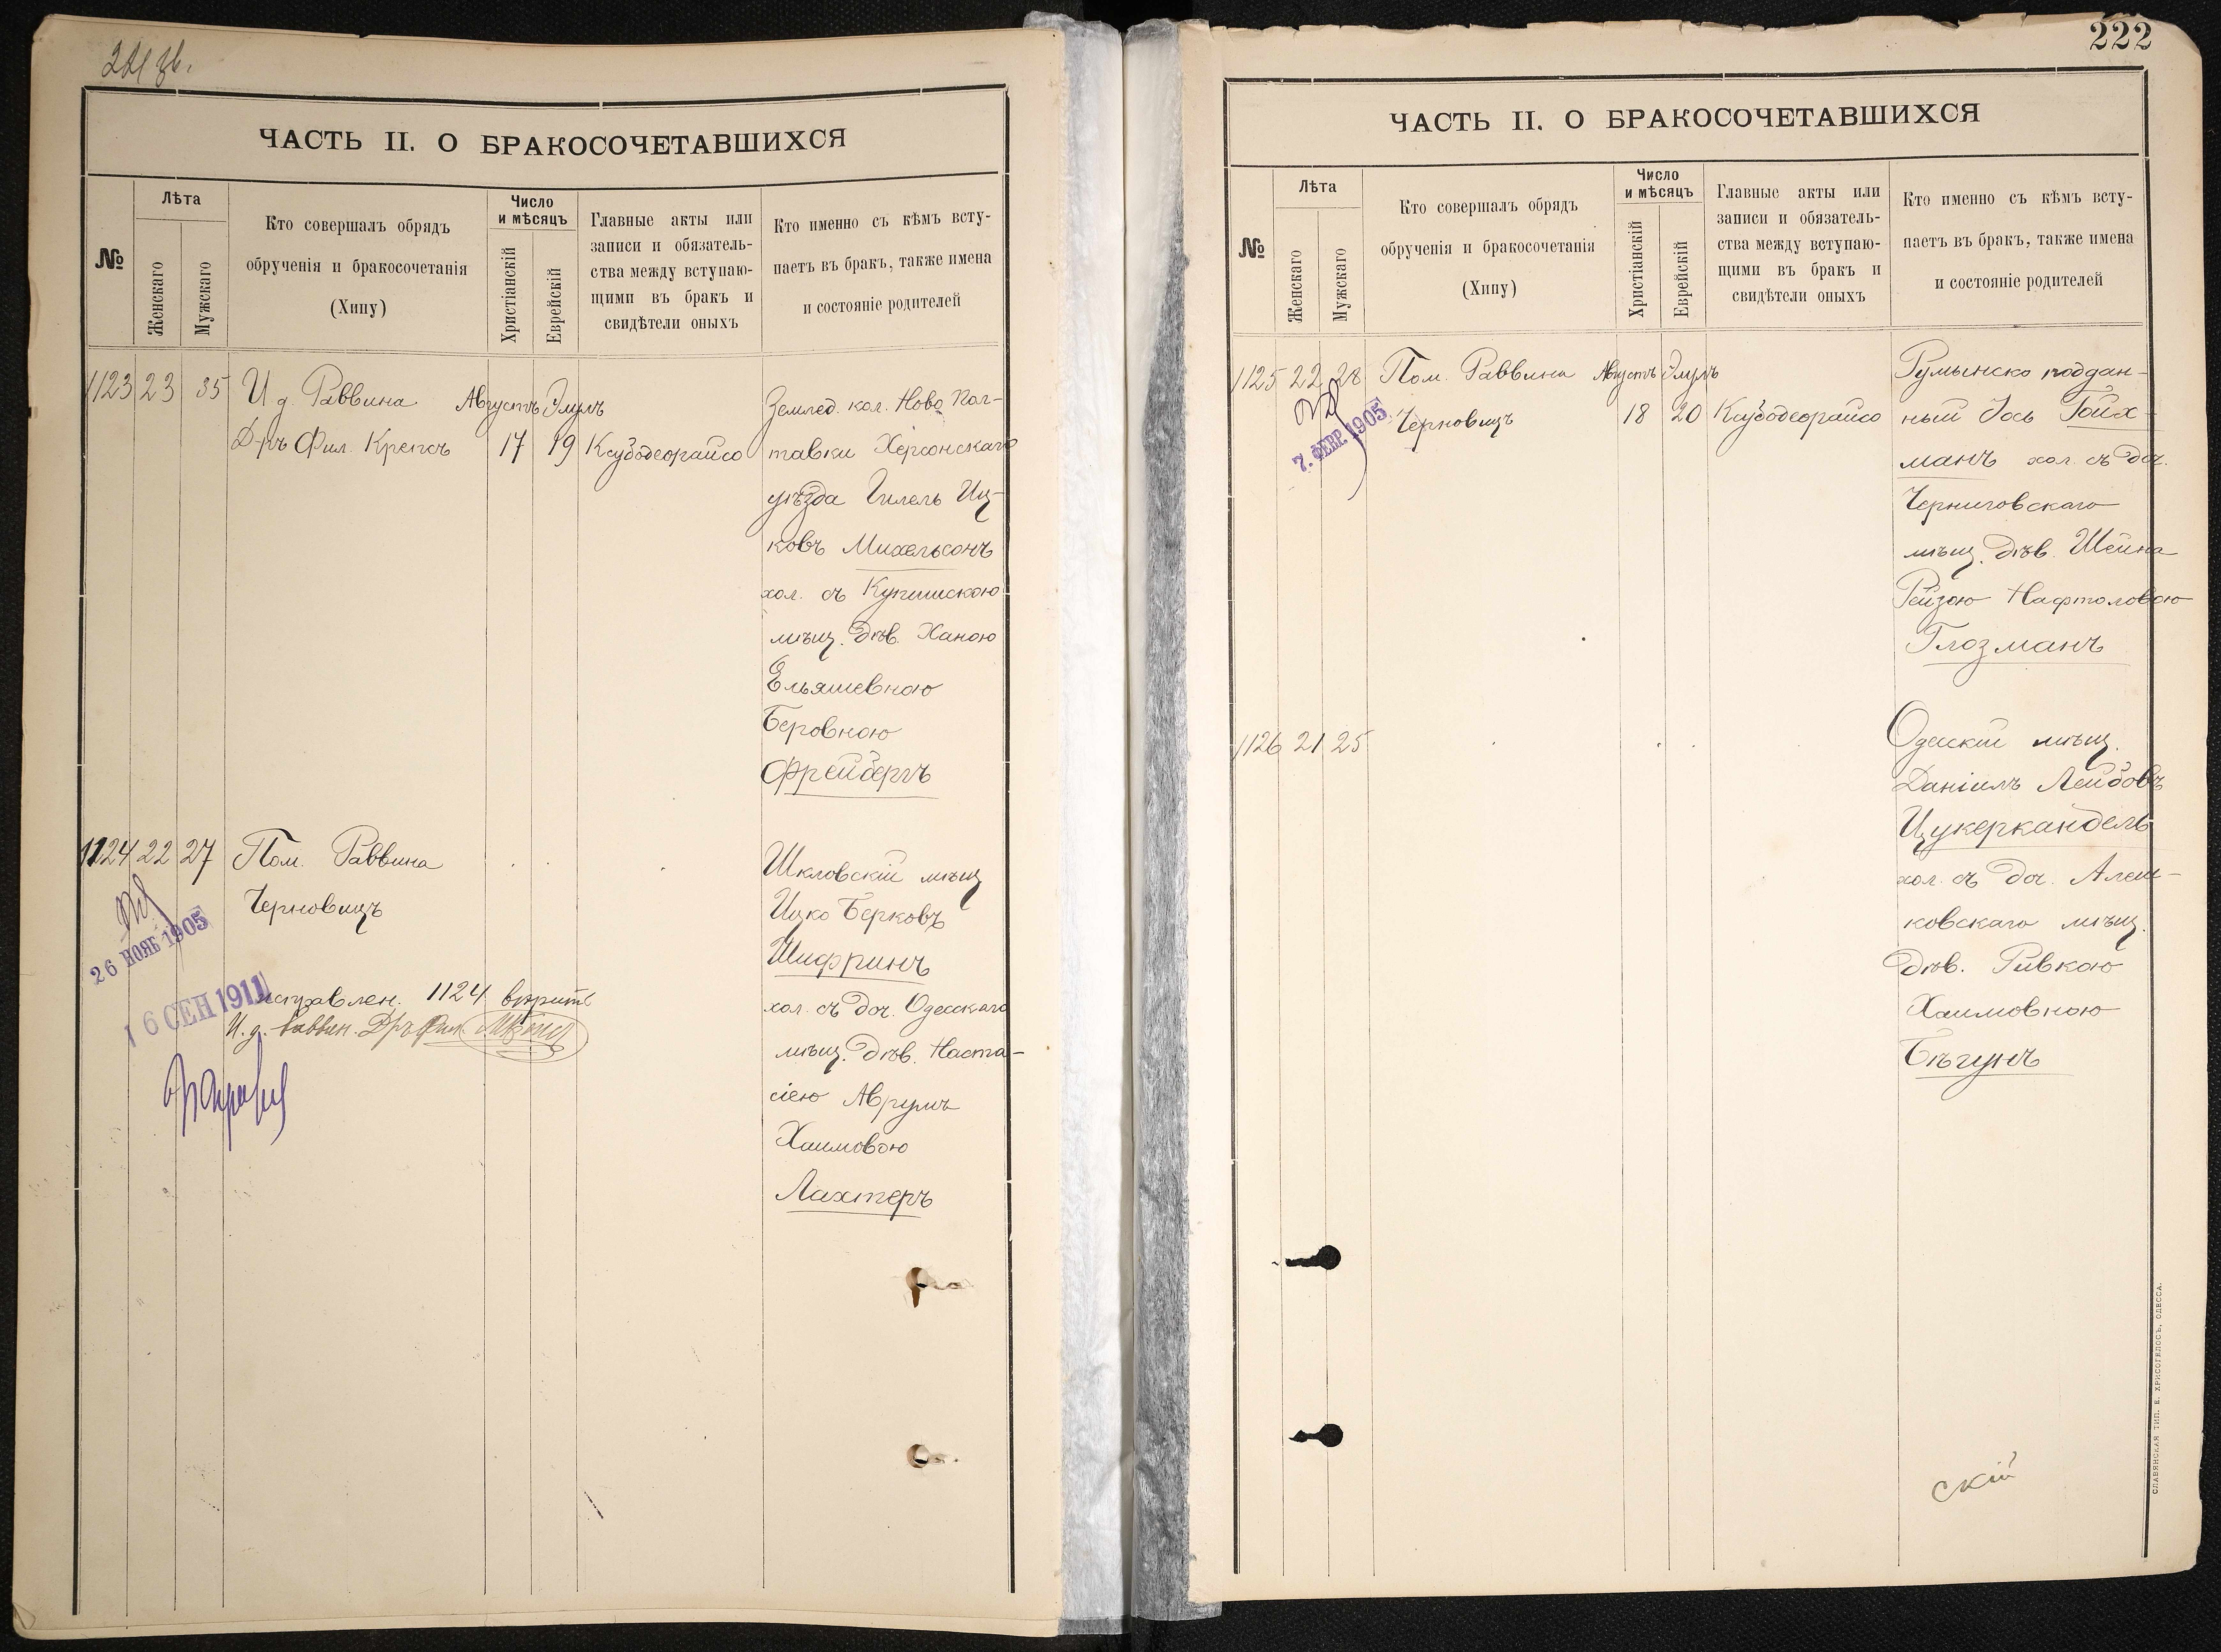 221 зв.
ЧАСТЬ II. О БРАКОСОЧЕТАВШИХСЯ
№
Лѣта
Женскаго
Мужскаго
Кто совершалъ обрядъ
обрученія и бракосочетанія
(Хипу)
Число
и мѣсяцъ
Христіанскій
Еврейскій
Главные акты или
записи и обязатель-
ства между вступаю-
щими въ бракъ и
свидѣтели оныхъ
Кто именно съ кѣмъ всту-
паетъ въ бракъ, также имена
и состояніе родителей
1123 23 35 И д. Раввина Августъ Элулъ
Д-ръ Фил. Крепсъ 17 19 Ксубодеорайсо
Землед. кол. Ново Пол-
тавки Херсонскаго
уѣзда Гилель Иц-
ковъ Михельсонъ
хол. съ Купишскою
мѣщ. дѣв. Ханою
Ельяшевною
Беровною
Фрейбергъ
1124 22 27 Пом. Раввина
Черновицъ
26 НОЯБ 1905
16 СЕН 1911
исправлен. 1124 вѣрить
И. д. Раввин. Д-ръ Фил.
Шкловскій мѣщ
Ицко Берковъ
Шифринъ
хол. съ доч. Одесскаго
мѣщ. дѣв. Наста-
сіею Аврумъ
Хаимовою
Лахтеръ
222
ЧАСТЬ II. О БРАКОСОЧЕТАВШИХСЯ
№
Лѣта
Женскаго
Мужскаго
Кто совершалъ обрядъ
обрученія и бракосочетанія
(Хипу)
Число
и мѣсяцъ
Христіанскій
Еврейскій
Главные акты или
записи и обязатель-
ства между вступаю-
щими въ бракъ и
свидѣтели оныхъ
Кто именно съ кѣмъ всту-
паетъ въ бракъ, также имена
и состояніе родителей
1125 22 28 Пом. Раввина Августъ Элулъ
Черновицъ 18 20 Ксубодеорайсо
7. ФЕВР 1905
Румынско поддан-
ный Іось Гойх-
манъ хол. съ доч.
Черниговскаго
мѣщ. дѣв. Шейна
Рейзою Нафтоловою
Глозманъ
1126 21 25
Одесскій мѣщ.
Даніилъ Лейбовъ
Цукеркандель
хол. съ доч. Алеш-
ковскаго мѣщ.
дѣв. Ривкою
Хаимовною
Бѣгунъ
скій
СЛАВЯНСКАЯ ТИП. Е. ХРИСОГЕЛОСЪ, ОДЕССА.